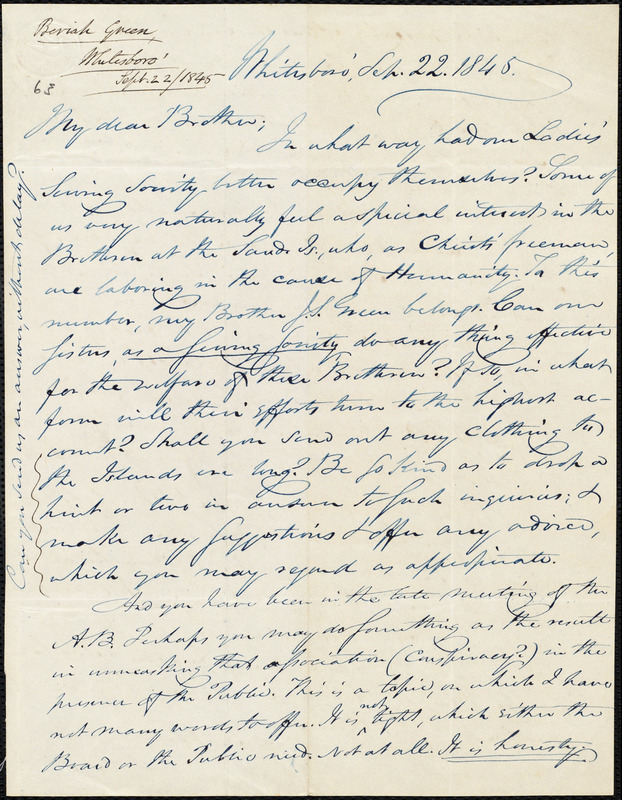 Beriah Green,
Whitesboro'
Sept. 22/1845
Whitesboro', Sep. 22. 1845.
My dear Brother;
In what way had our Ladies'
Sewing Society better occupy themselves? Some of
us very naturally feel a special interest in the
Brethren at the Sand. Is., who, as Christ's freemen,
are laboring in the cause of Humanity. To this
number, my Brother J.S. Green belongs. Can our
Sisters, as a Sewing Society do any thing effective
for the welfare of these Brethren? If so, in what
form will their efforts turn to the highest ac-
count? Shall you send out any clothing to
the Islands ere long? Be so kind as to drop a
hint or two in answer to such inquiries; &
make any suggestions & offer any advice,
which you may regard as appropriate.
And you have been in the late meeting of the
A.B. Perhaps you may do something as the result
in unmasking that association (conspiracy?) in the
presence of the Public. This is a topic, on which I have
not many words to offer. It is not light, which either the
Board or the Public need. Not at all. It is honesty.
Can you send us an answer without delay?